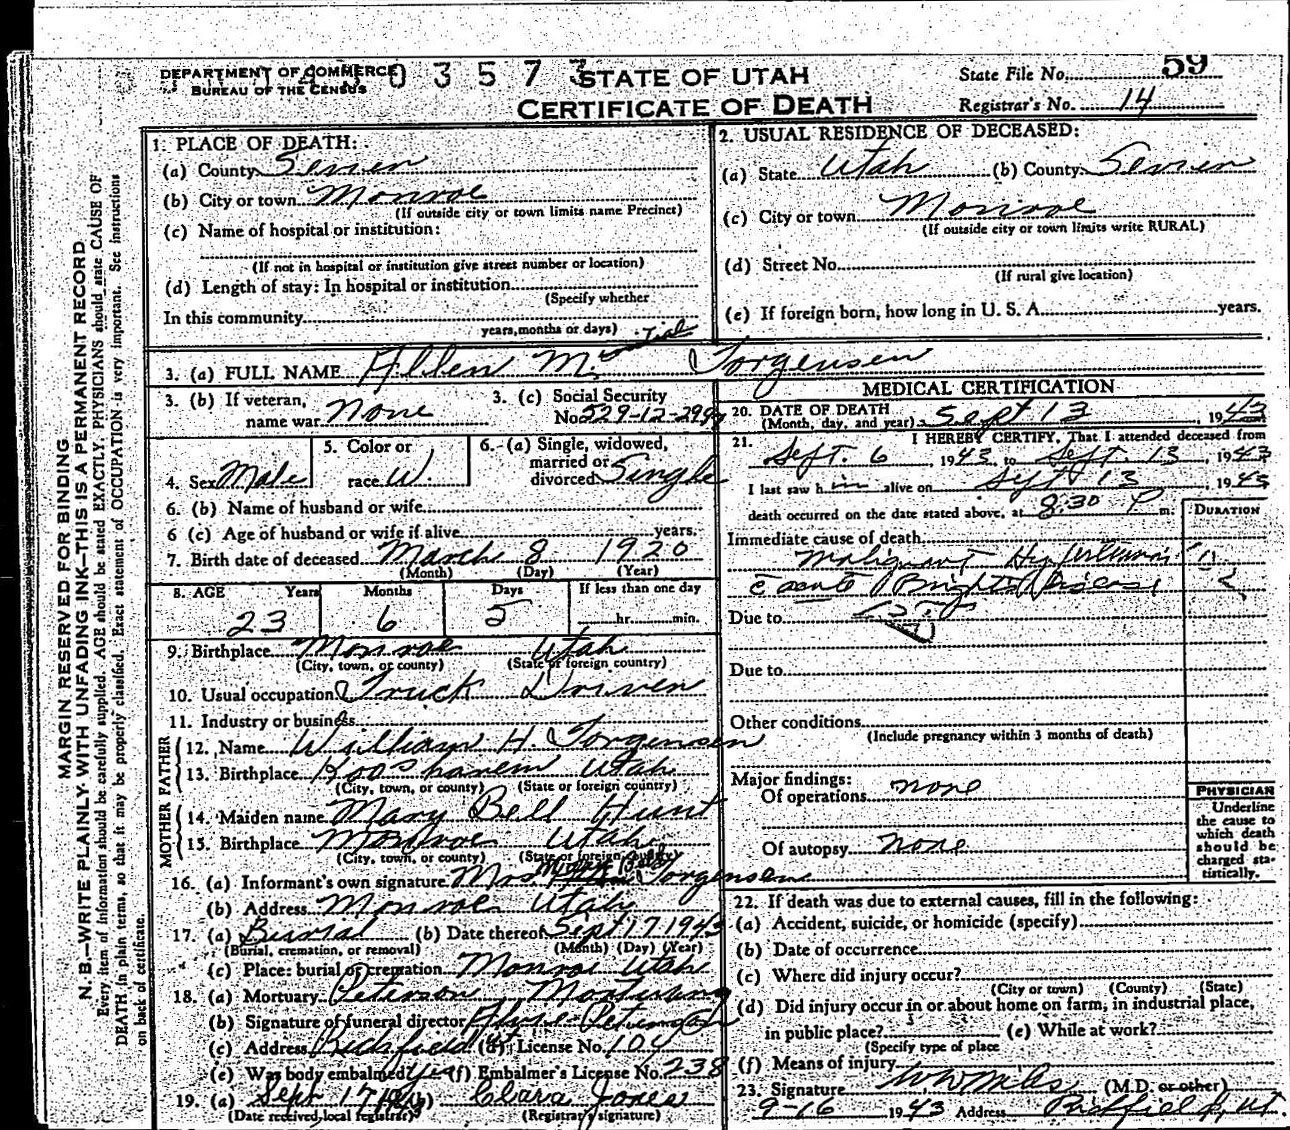 DEPARTMENT OF COMMERCE
BUREAU OF THE CENSUS
0 3 5 7 3
STATE OF UTAH
CERTIFICATE OF DEATH
State File No. 59
Registrar's No. 14
MARGIN RESERVED FOR BINDING
N. B.—WRITE PLAINLY WITH UNFADING INK—THIS IS A PERMANENT RECORD
Every item of information should be carefully supplied. AGE should be stated EXACTLY. PHYSICIANS should state CAUSE OF
DEATH in plain terms, so that it may be properly classified. Exact statement of OCCUPATION is very important. See instructions
on back of certificate.
1. PLACE OF DEATH:
(a) County Sevier
(b) City or town Monroe
(If outside city or town limits name Precinct)
(c) Name of hospital or institution:
(If not in hospital or institution give street number or location)
(d) Length of stay: In hospital or institution
(Specify whether
In this community
years, months or days)
2. USUAL RESIDENCE OF DECEASED:
(a) State Utah (b) County Sevier
(c) City or town Monroe
(If outside city or town limits write RURAL)
(d) Street No.
(If rural give location)
(e) If foreign born, how long in U. S. A. years.
3. (a) FULL NAME Allen M. Jorgensen
3. (b) If veteran, name war None
3. (c) Social Security No.
4. Sex Male
5. Color or race W.
6. (a) Single, widowed, married or divorced Single
6. (b) Name of husband or wife
6 (c) Age of husband or wife if alive years.
7. Birth date of deceased March 8 1920
(Month) (Day) (Year)
8. AGE Years Months Days If less than one day
23 6 5 hr. min.
9. Birthplace Monroe Utah
(City, town, or county) (State or foreign country)
10. Usual occupation Truck Driver
11. Industry or business
FATHER
12. Name William H Jorgensen
13. Birthplace Koosharem Utah
(City, town, or county) (State or foreign country)
MOTHER
14. Maiden name Mary Bell Hunt
15. Birthplace Monroe Utah
(City, town, or county) (State or foreign country)
16. (a) Informant's own signature Mrs Jorgensen
(b) Address Monroe Utah
17. (a) Burial (b) Date thereof Sept 17 1943
(Burial, cremation, or removal) (Month) (Day) (Year)
(c) Place: burial or cremation Monroe Utah
18. (a) Mortuary Peterson Mortuary
(b) Signature of funeral director
(c) Address Richfield (d) License No. 104
(e) Was body embalmed? Yes (f) Embalmer's License No. 238
19. (a) Sept 17 (b) Clara Jones
(Date received local registrar) (Registrar's signature)
MEDICAL CERTIFICATION
20. DATE OF DEATH
(Month, day, and year) Sept 13 1943
21. I HEREBY CERTIFY, That I attended deceased from
Sept. 6 1943, to Sept. 13, 1943
I last saw him alive on Sept 13 1943
death occurred on the date stated above, at 8:30 P m.
DURATION
Immediate cause of death
Malignant Hypertension
Brights Disease
Due to
Due to
Other conditions
(Include pregnancy within 3 months of death)
Major findings:
Of operations none
Of autopsy none
PHYSICIAN
Underline
the cause to
which death
should be
charged sta-
tistically.
22. If death was due to external causes, fill in the following:
(a) Accident, suicide, or homicide (specify)
(b) Date of occurrence
(c) Where did injury occur?
(City or town) (County) (State)
(d) Did injury occur in or about home on farm, in industrial place,
in public place? (e) While at work?
(Specify type of place
(f) Means of injury
23. Signature (M.D. or other)
9-16 1943 Address Richfield, Ut.